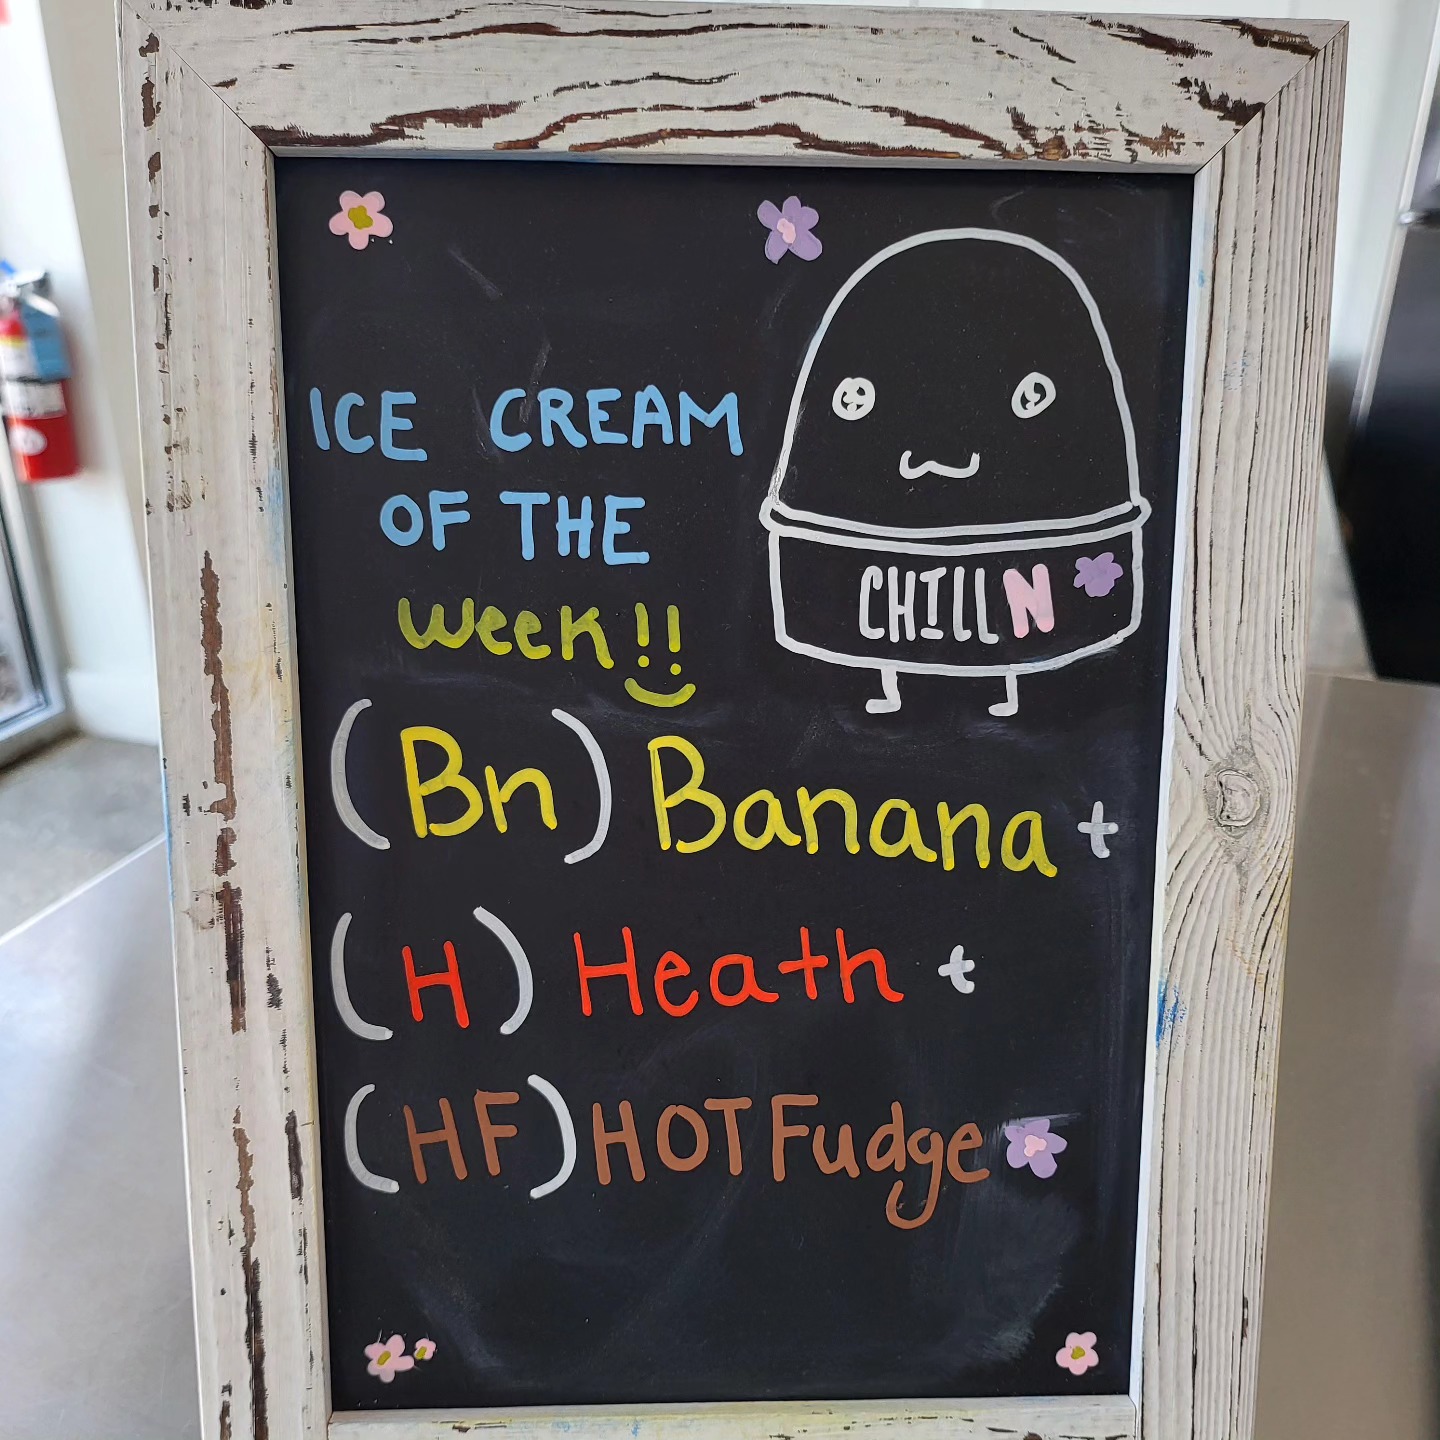 ICE CREAM
OF THE
week!!
CHILLN
(Bn) Banana +
(H) Heath +
(HF) HOT Fudge